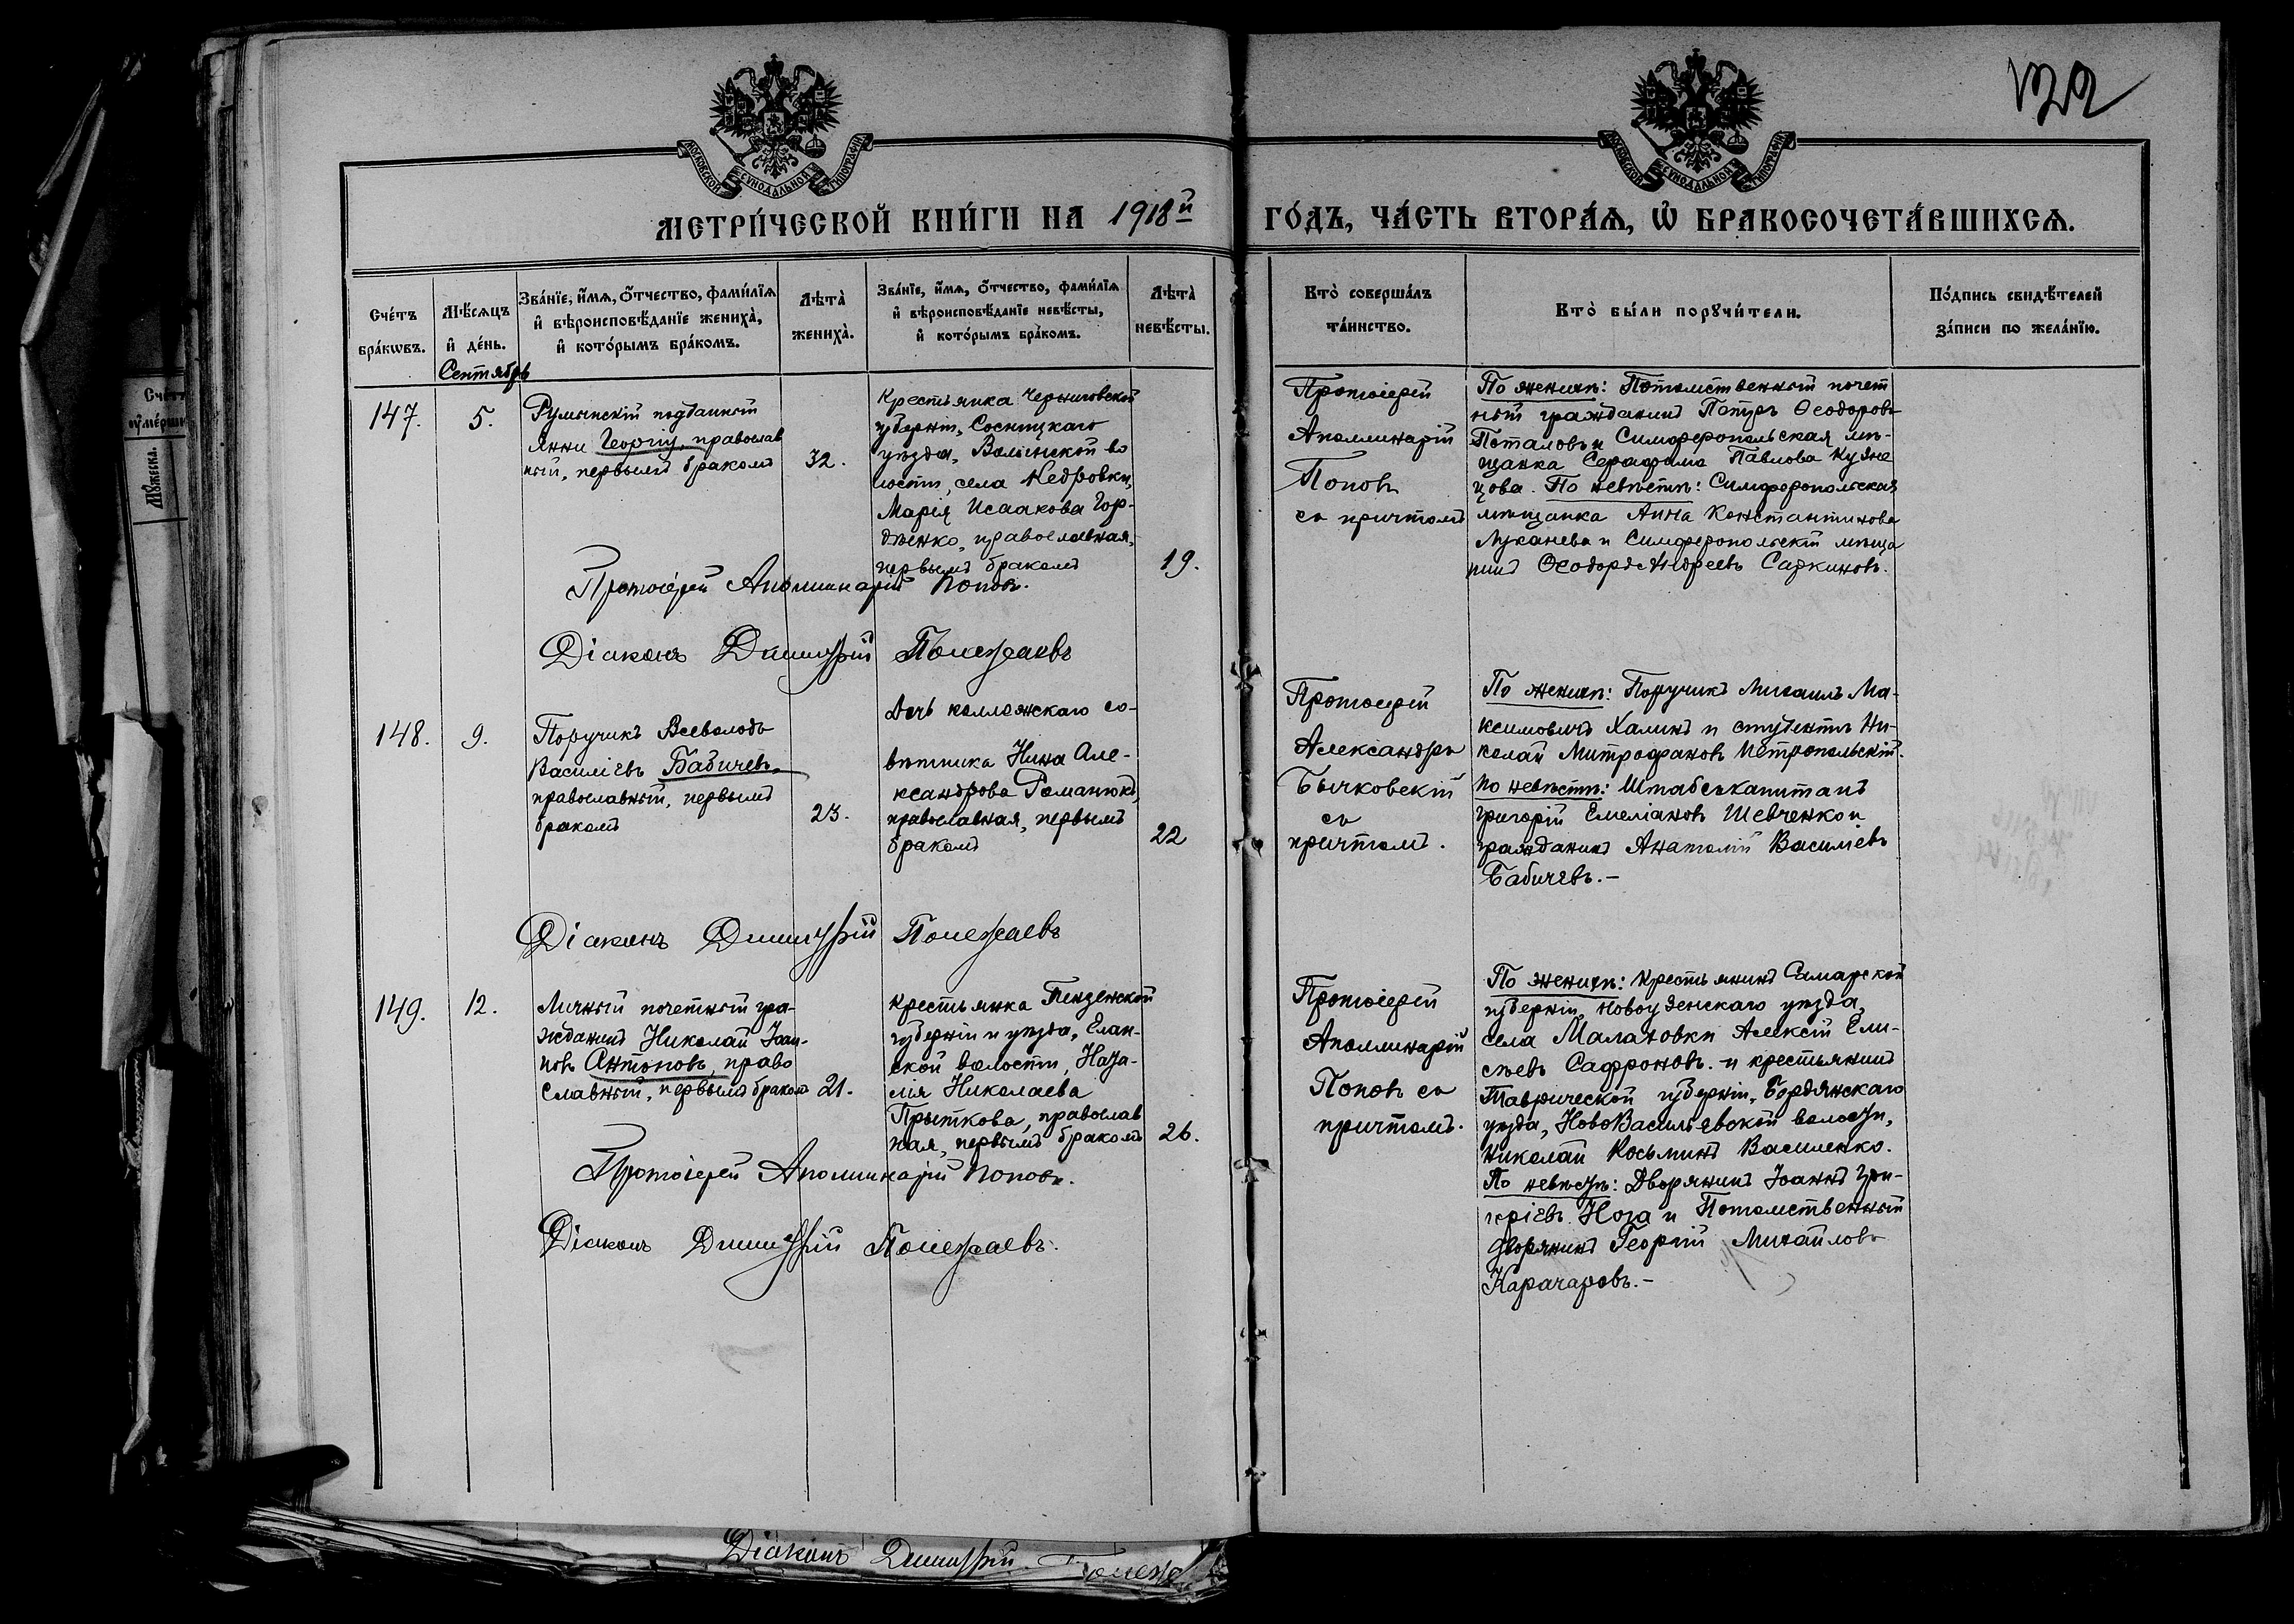 132
МОСКОВСКОЙ СѴНОДАЛЬНОЙ ТИПОГРАФІИ
МОСКОВСКОЙ СѴНОДАЛЬНОЙ ТИПОГРАФІИ
МЕТРИ́ЧЕСКОЙ КНИ́ГИ НА 1918й
ГО́ДЪ, ЧА́СТЬ ВТОРА́Ѧ, Ѽ БРАКОСОЧЕТА́ВШИХСѦ.
Сче́тъ
бра́кѡвъ.
Мѣ́сѧцъ
и҆ де́нь.
Зва́нїе, и҆́мѧ, ѻ҆́тчество, фами́лїѧ
и҆ вѣроисповѣ́данїе жениха̀,
и҆ кото́рымъ бра́комъ.
Лѣта̀
жениха̀.
Зва́нїе, и҆́мѧ, ѻ҆́тчество, фами́лїѧ
и҆ вѣроисповѣ́данїе невѣ́сты,
и҆ кото́рымъ бра́комъ.
Лѣта̀
невѣ́сты.
Кто̀ соверша́лъ
та́инство.
Кто̀ бы́ли порꙋчи́тели.
По́дпись свидѣ́телей
за́писи по жела́нїю.
Сентябрь
147.
5.
Румынскій подданный
Янни Георгіу, православ
ный, первымъ бракомъ
32.
Крестьянка Черниговской
губерніи, Сосницкаго
уѣзда, Волынской во
лости, села Кедровки,
Марія Исаакова Гор-
дѣенко, православная,
первымъ бракомъ
19.
Протоіерей
Аполлинарій
Поповъ
со причтомъ
По женихѣ: Потомственный почет
ный гражданинъ Петръ Ѳеодоровъ
Поталовъ и Симферопольская мѣ-
щанка Серафима Павлова Кузне
цова. По невѣстѣ: Симферопольская
мѣщанка Анна Константинова
Луканева и Симферопольскій мѣща
нинъ Ѳеодоръ Андреевъ Саркиновъ.
Протоіерей Аполлинарій Поповъ.
Діаконъ Димитрій Полежаевъ
148.
9.
Поручикъ Всеволодъ
Василіевъ Бабичевъ,
православный, первымъ
бракомъ
23.
Дочь коллежскаго со-
вѣтника Нина Але-
ксандрова Романюкъ,
православная, первымъ
бракомъ
22
Протоіерей
Александръ
Бычковскій
со
причтомъ.
По женихѣ: Поручикъ Михаилъ Ма-
ксимовичъ Халинъ и студентъ Ни-
колай Митрофановъ Петропольскій.
По невѣстѣ: Штабсъкапитанъ
Григорій Емеліановъ Шевченко и
гражданинъ Анатолій Василіевъ
Бабичевъ.-
Діаконъ Димитрій Полежаевъ
149.
12.
Личный почетный гра-
жданинъ Николай Іоан-
новъ Антоновъ, право
славный, первымъ бракомъ
21.
Крестьянка Пензенской
губерніи и уѣзда, Елан-
ской волости, Ната-
лія Николаева
Прыткова, православ
ная, первымъ бракомъ
26.
Протоіерей
Аполлинарій
Поповъ со
причтомъ.
По женихѣ: Крестьянинъ Самарской
губерніи, Новоузенскаго уѣзда,
села Малаховки Алексій Ели-
сѣевъ Сафроновъ и крестьянинъ
Таврической губерніи, Бердянскаго
уѣзда, НовоВасильевской волости,
Николай Косьминъ Василенко.
По невѣстѣ: Дворянинъ Іоаннъ Гри-
горіевъ Нога и Потомственный
дворянинъ Георгій Михайловъ
Карачаровъ.-
Протоіерей Аполлинарій Поповъ.
Діаконъ Димитрій Полежаевъ.
Діаконъ Димитрій Полежа